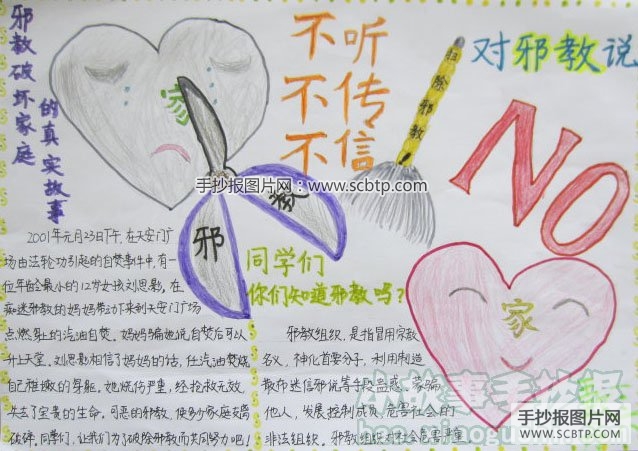 邪教破坏家庭
的真实故事
家
邪
教
不听
不传
不信
扫除邪教
对邪教说
NO
手抄报图片网：www.scbtp.com
同学们
你们知道邪教吗？
家
2001年元月23日下午，在天安门广
场由法轮功引起的自焚事件中，有一
位年龄最小的12岁女孩刘思影，在
痴迷邪教的妈妈带动下来到天安门广场
点燃身上的汽油自焚。妈妈骗她说自焚后可以
升上天堂。刘思影相信了妈妈的话，任汽油焚烧
自己稚嫩的身躯。她烧伤严重，经抢救无效，
失去了宝贵的生命。可恶的邪教，使多少家庭支离
破碎。同学们，让我们为了破除邪教而共同努力吧！
邪教组织，是指冒用宗教
名义，神化首要分子，利用制造
散布迷信邪说等手段蛊惑、蒙骗
他人，发展控制成员，危害社会的
非法组织。邪教组织对社会危害严重。
小故事手抄报
手抄报图片网
WWW.SCBTP.COM